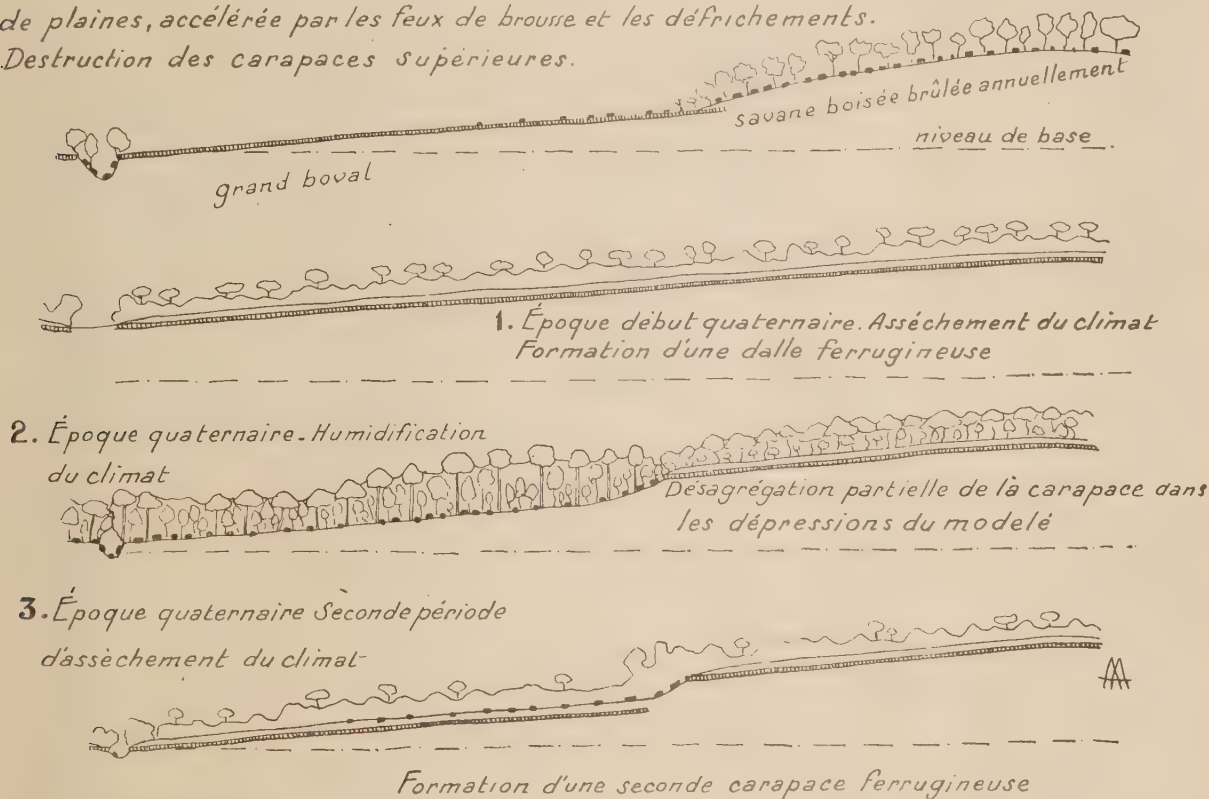 de plaines, accélérée par les feux de brousse et les défrichements.
Destruction des carapaces supérieures.
savane boisée brûlée annuellement
niveau de base
grand boval
1. Époque début quaternaire. Asséchement du climat
Formation d'une dalle ferrugineuse
2. Époque quaternaire - Humidification
du climat
Désagrégation partielle de la carapace dans
les dépressions du modelé
3. Époque quaternaire Seconde période
d'assèchement du climat-
Formation d'une seconde carapace ferrugineuse